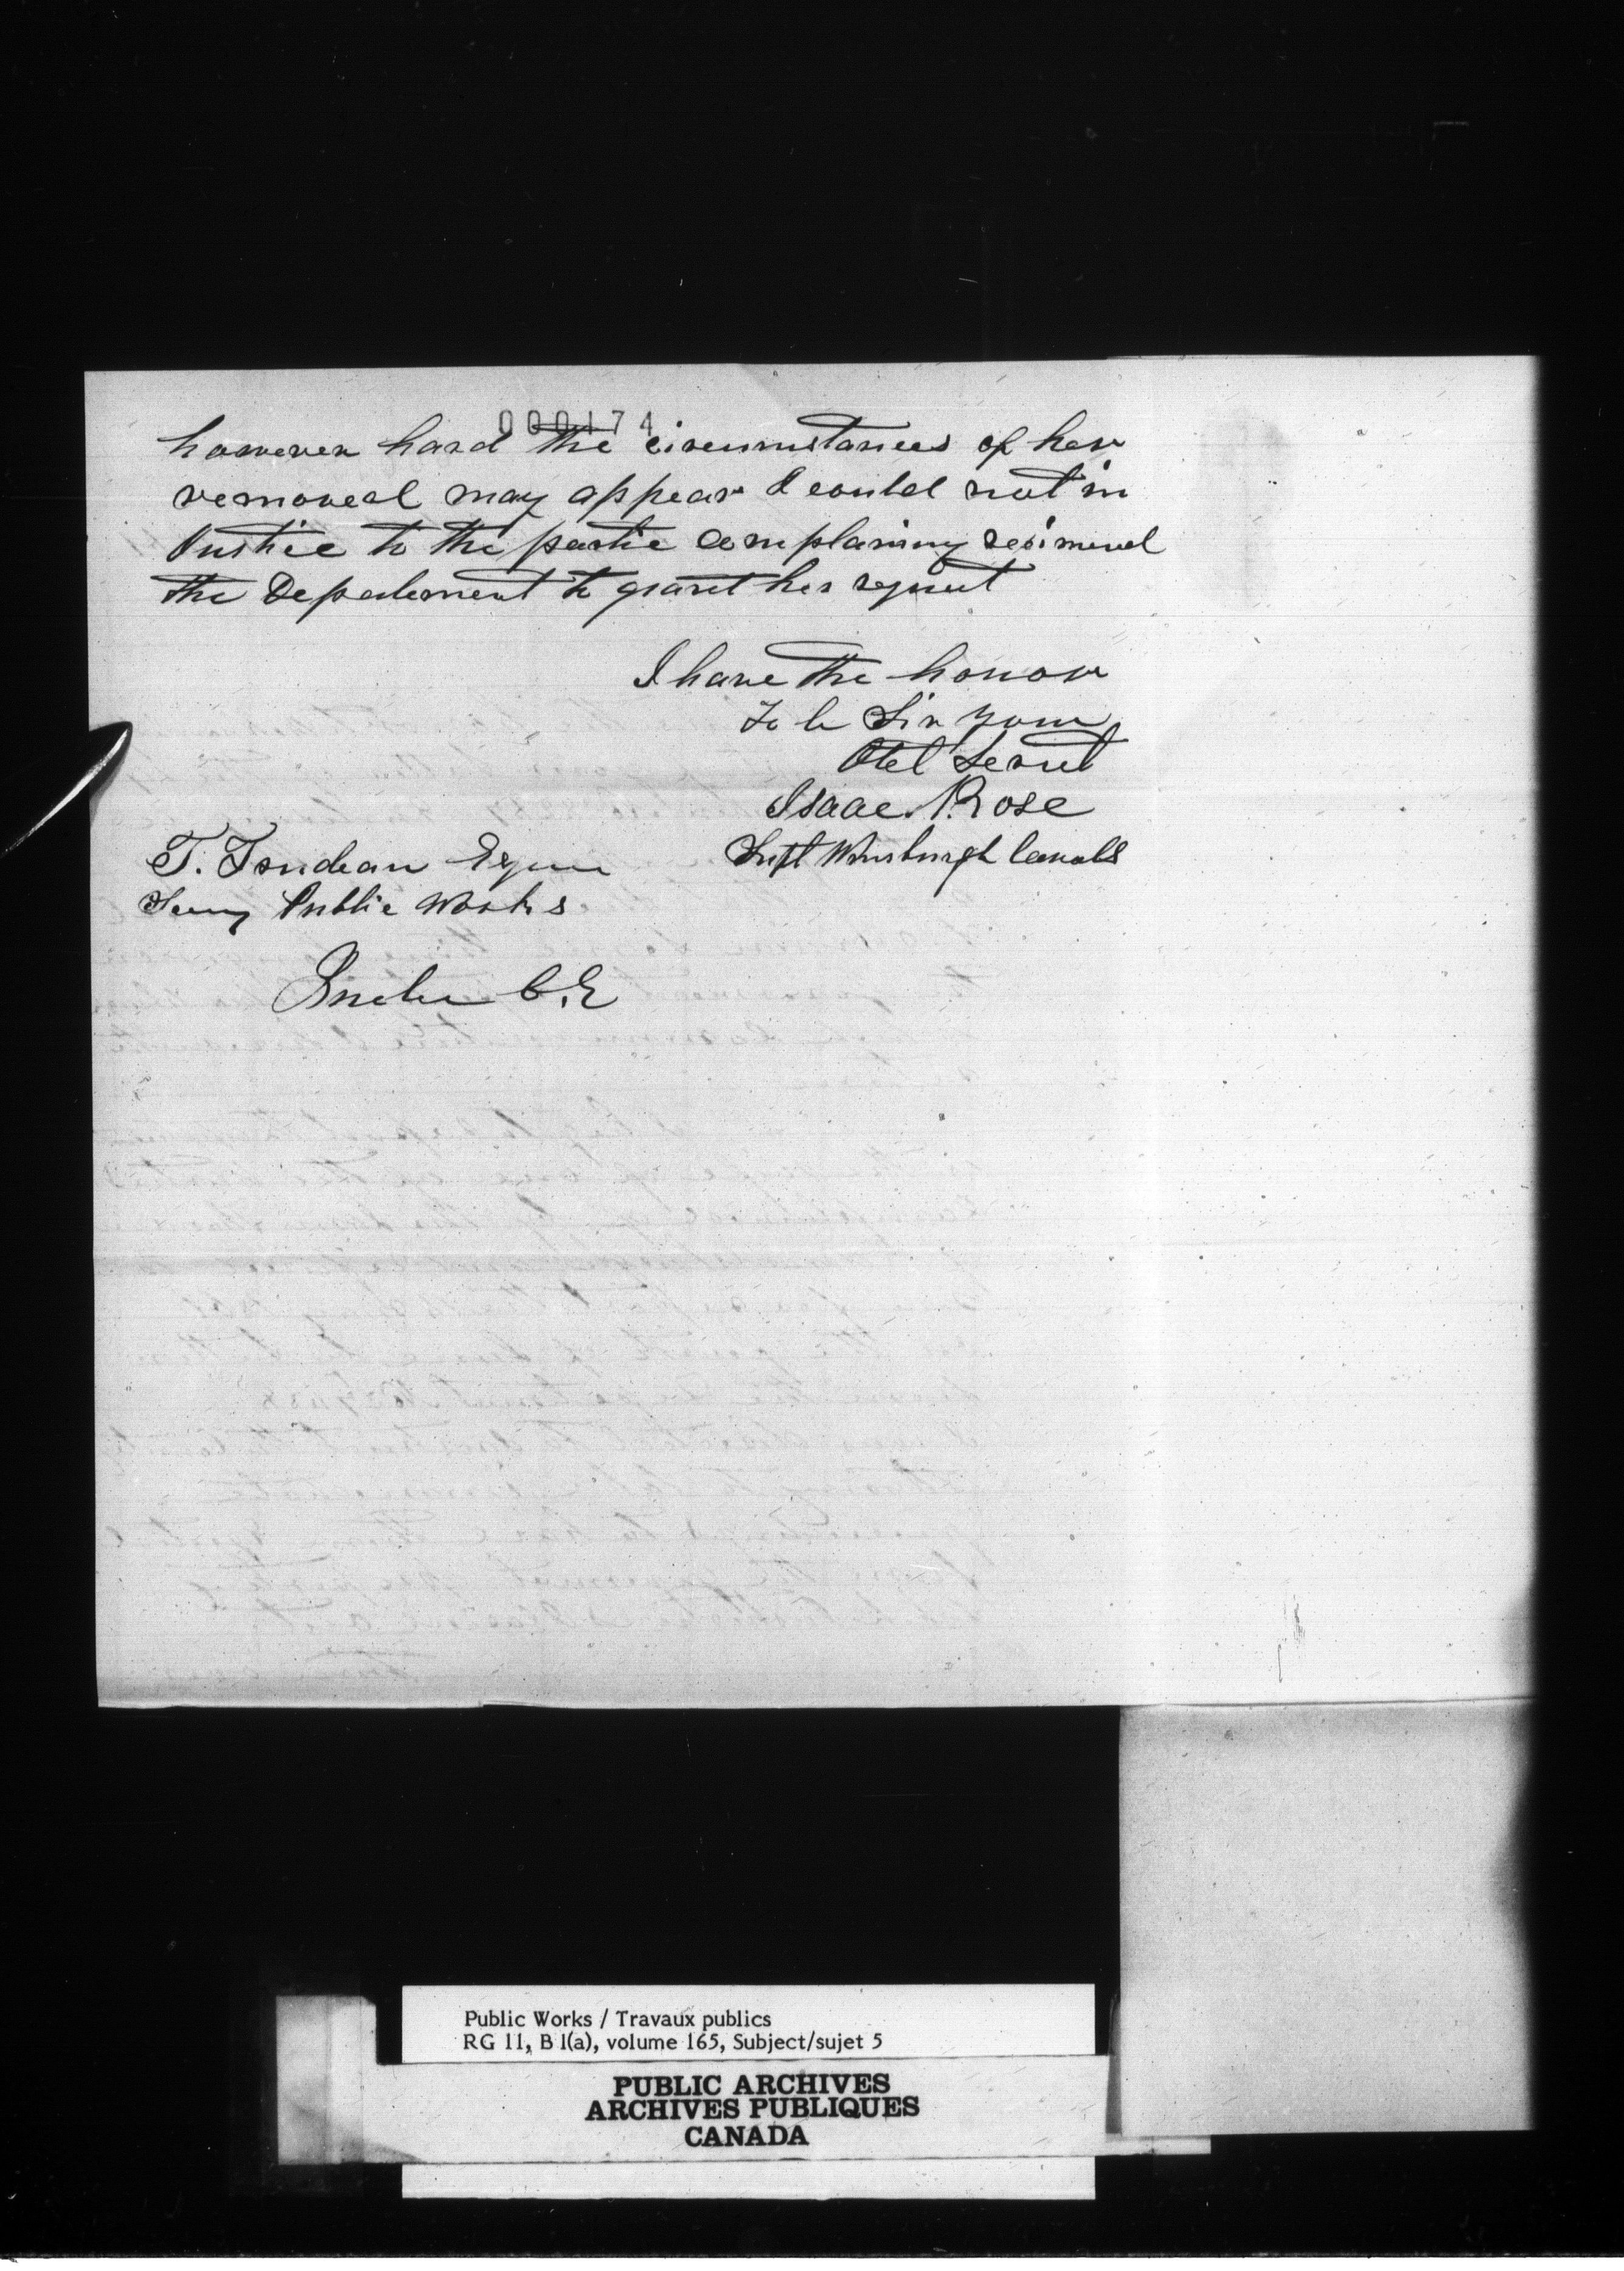 000174
however hard the circumstances of her
removeal may appear I could not in
Justice to the partie complaining
the Department to grant her request
I have the honor
To be Sir your
Obt Servt
Isaac N. Rose
Supt Wmsburgh Canals
T. Trudeau Esqur
Secy Public Works
Quebec C.E
Public Works / Travaux publics
RG 11, B 1(a), volume 165, Subject/sujet 5
PUBLIC ARCHIVES
ARCHIVES PUBLIQUES
CANADA